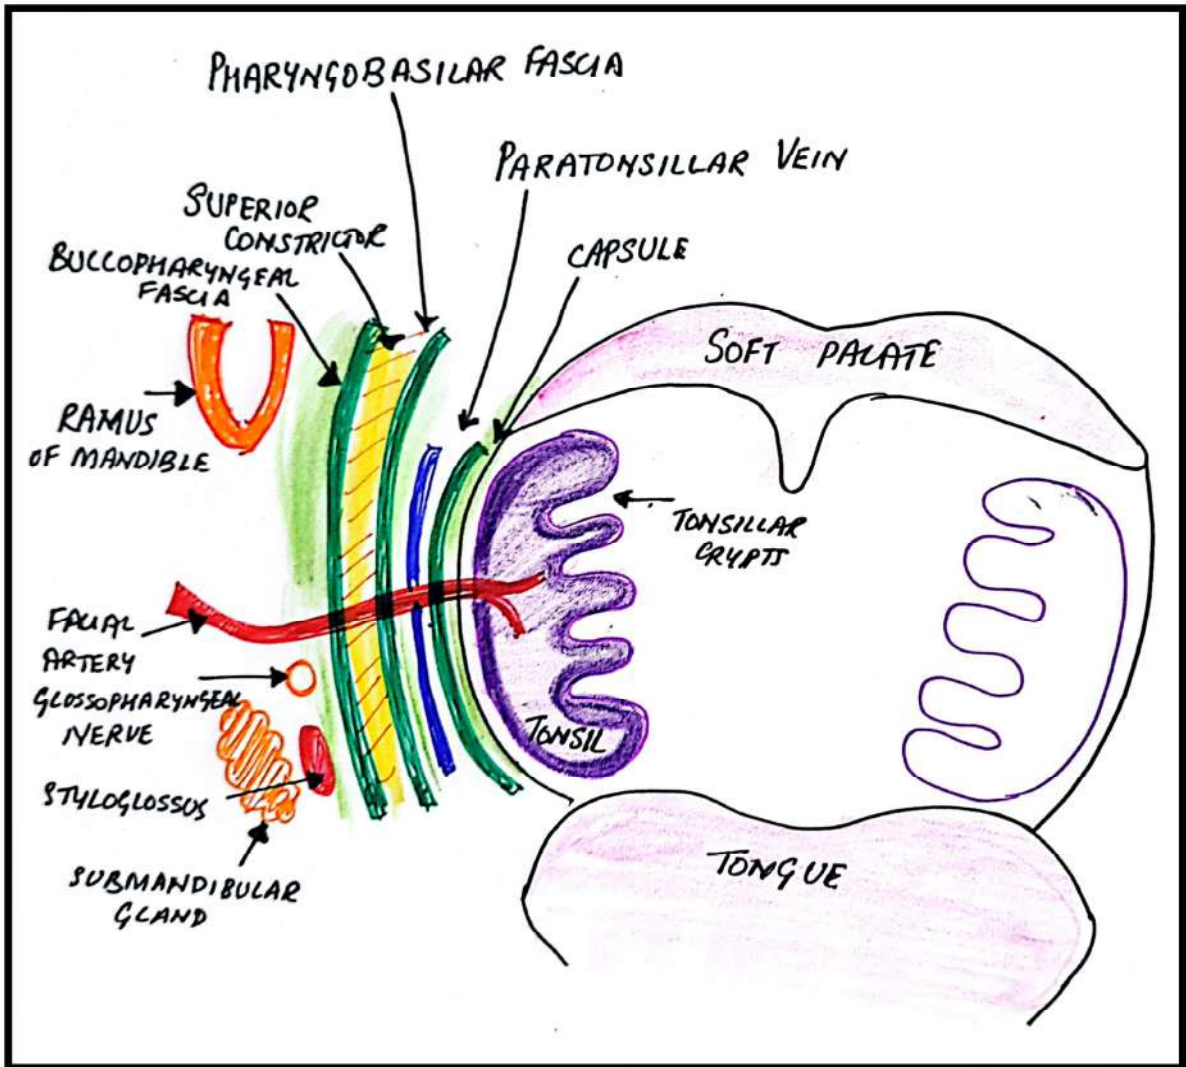 PHARYNGOBASILAR FASCIA
PARATONSILLAR VEIN
SUPERIOR
CONSTRICTOR
CAPSULE
BUCCOPHARYNGEAL
FASCIA
SOFT PALATE
RAMUS
OF MANDIBLE
TONSILLAR
CRYPTS
FACIAL
ARTERY
GLOSSOPHARYNGEAL
NERVE
TONSIL
STYLOGLOSSUS
SUBMANDIBULAR
GLAND
TONGUE